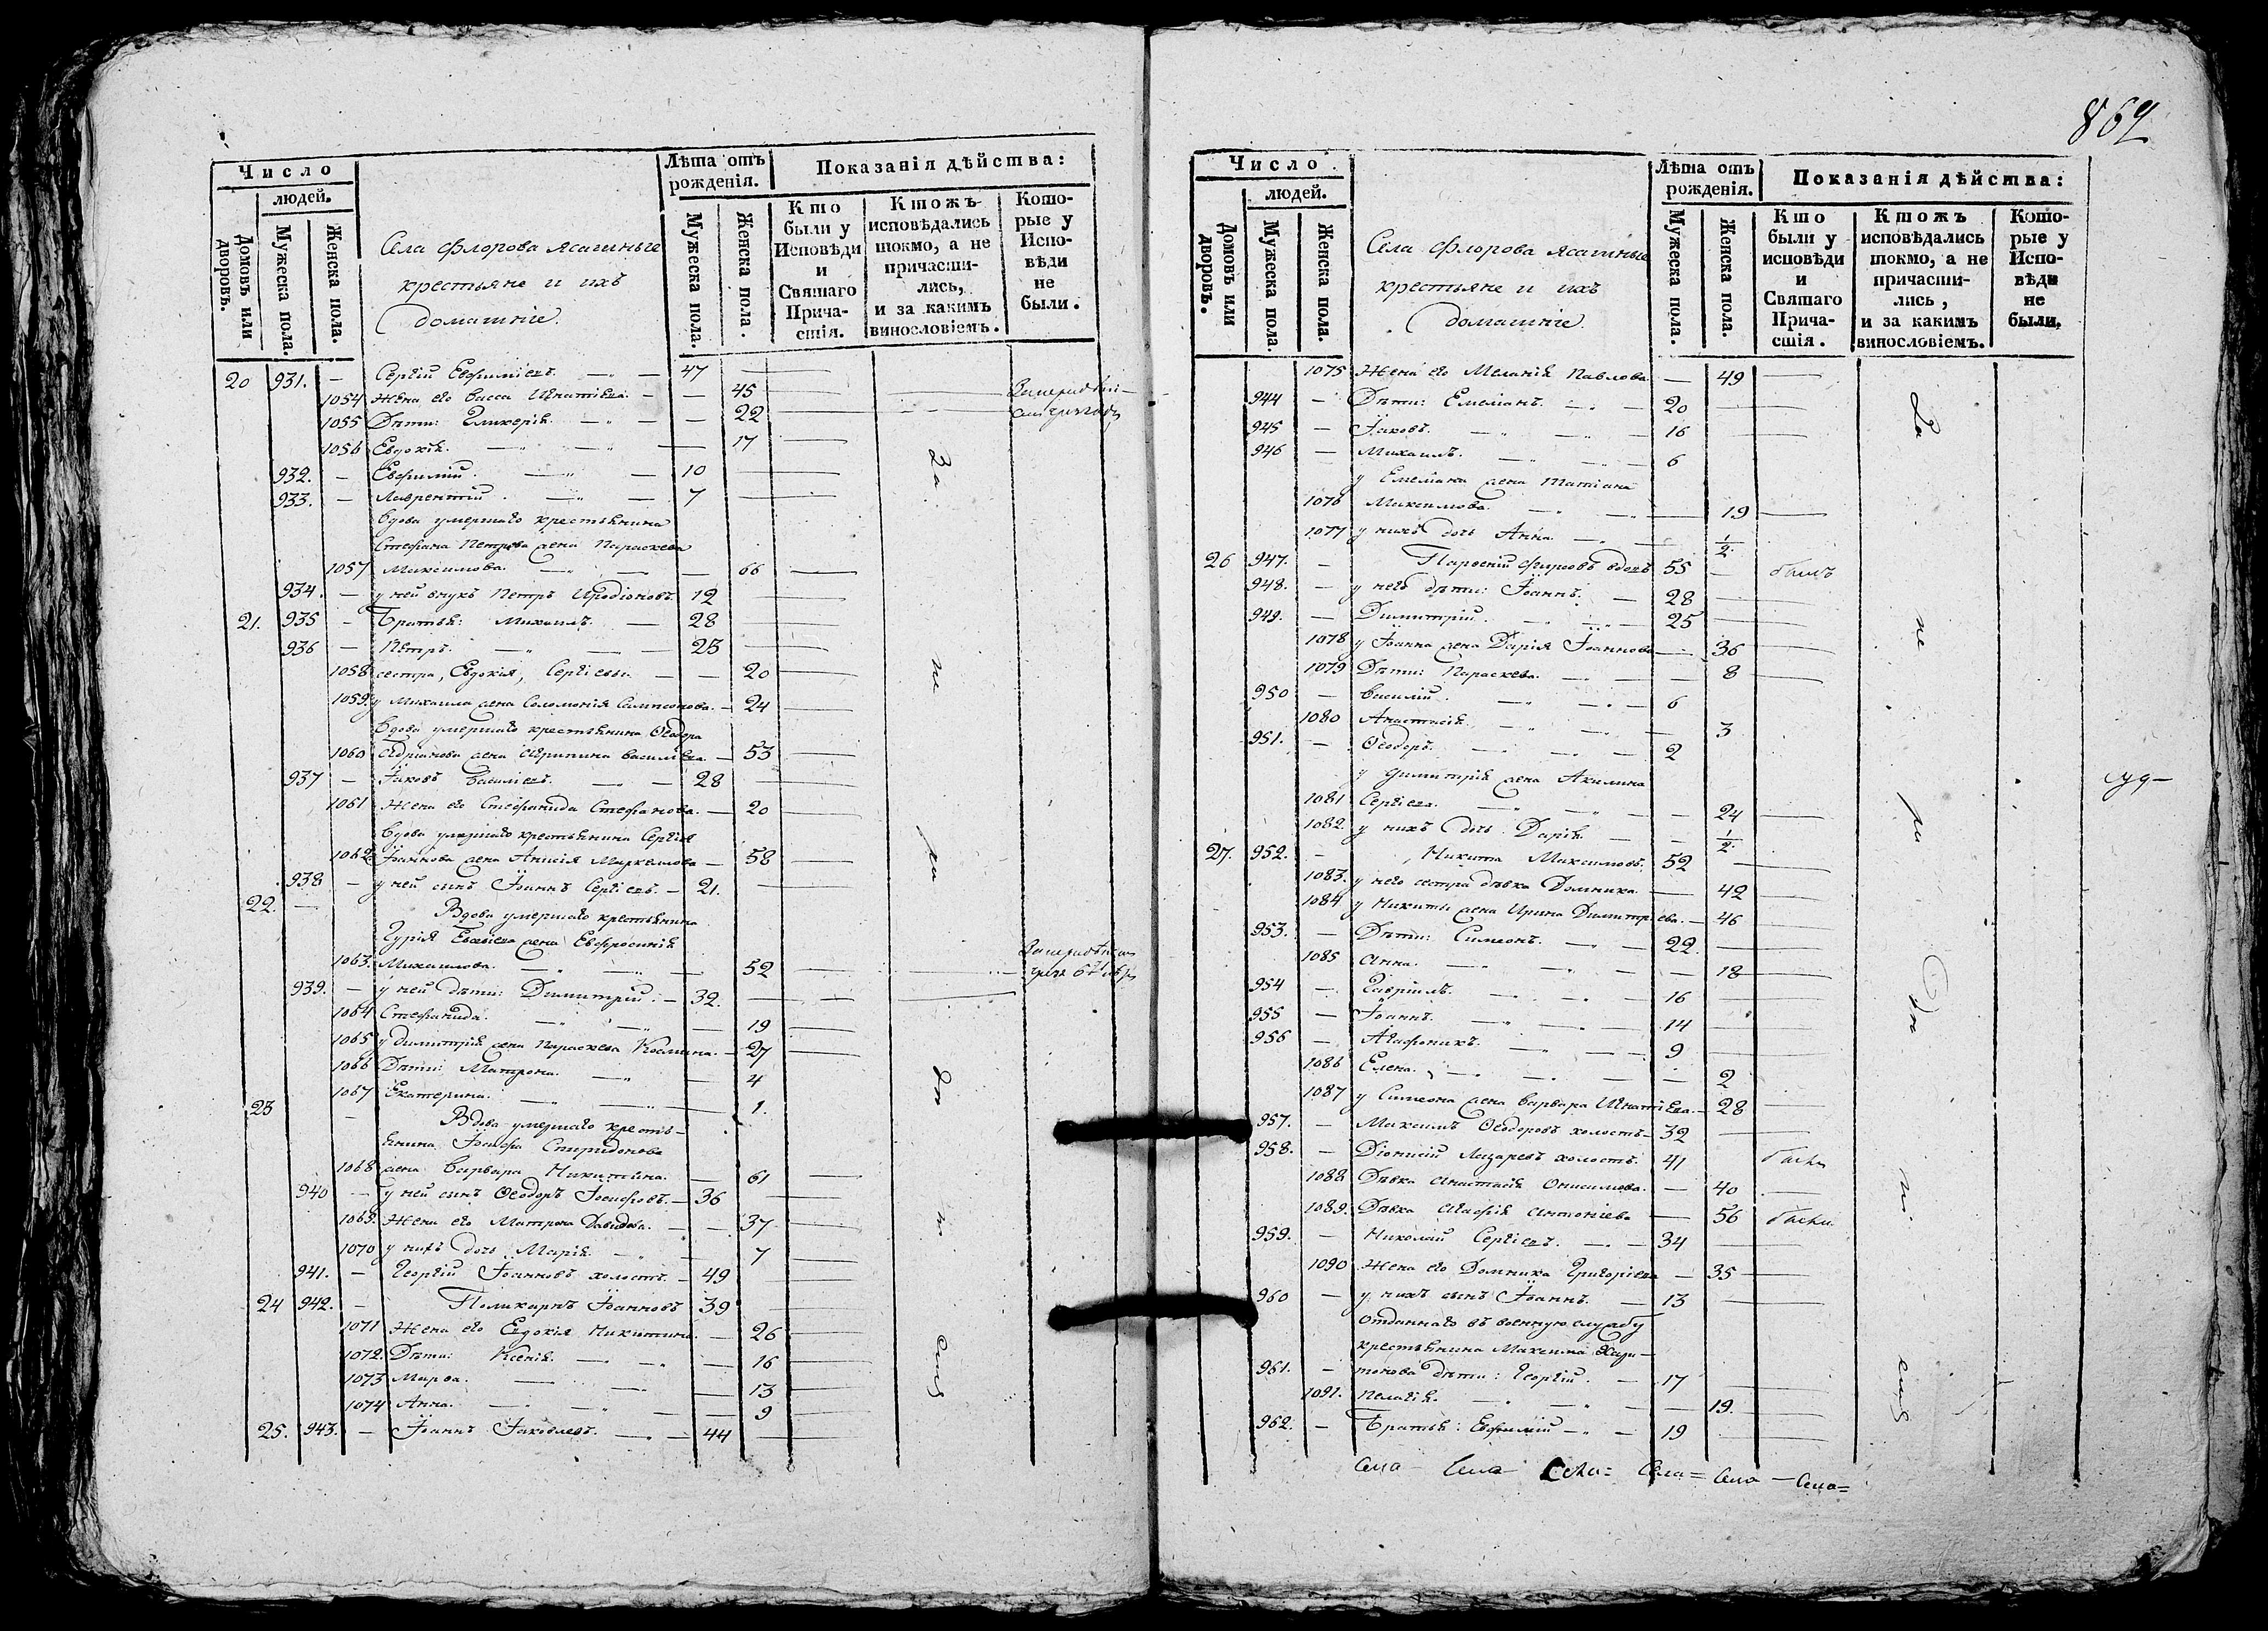 Число
людей.
Домовъ или дворовъ.
Мужеска пола.
Женска пола.
Села Флорова Ясашные
крестьяне и ихъ
домашніе.
Лѣта отъ рожденія.
Мужеска пола.
Женска пола.
Показанія дѣйства:
Кто были у Исповѣди и Святаго Причастія.
Ктожъ исповѣдались токмо, а не причастились, и за какимъ винословіемъ.
Которые у Исповѣди не были.
20 931. — Сергій Евфиміевъ. — 47
1054 Жена его Васса Игнатіева. — 45
1055 Дѣти: Гликерія. — 22
1056 Евдокія. — 17
932. — Евфимій. — 10
933. — Лаврентій. — 7
Вдова умершаго крестьянина
Стефана Петрова жена Параскева
1057 Максимова. — 66
934. — у ней внукъ Петръ Иродіоновъ. 12
21. 935 — Братья: Михаилъ. — 28
936 — Петръ. — 25
1058 сестра, Евдокія, Сергіевы — 20
1059. у Михаила жена Соломонія Сампсонова. — 24
Вдова умершаго крестьянина Ѳеодора
1060 Адріанова жена Агрипина Васильева. — 53
937 — Іаковъ Васильевъ. — 28
1061 Жена его Стефанида Стефанова. — 20
Вдова умершаго крестьянина Сергія
1062 Іоаннова жена Анисія Маркелова — 58
938 — у ней сынъ Іоаннъ Сергіевъ. — 21.
22. — Вдова умершаго крестьянина
Гурія жена Евфросинія
1063. Михаилова. — 52
939. — у ней дѣти: Димитрій. — 32.
1064 Стефанида. — 19
1065 у Димитрія жена Параскева Космина. — 27
1066 Дѣти: Матрона. — 4
1067 Екатерина. — 1.
23 — Вдова умершаго кресть-
янина Іосифа Спиридонова
1068 жена Варвара Никитина. — 61
940 — у ней сынъ Ѳеодоръ Іосифовъ. — 36
1069. Жена его Матрона Давидова. — 37
1070 у нихъ дочь Марія — 7
941. — Георгій Іоанновъ холостъ. — 49
24 942. — Поликарпъ Іоанновъ 39
1071 Жена его Евдокія Никитина. — 26
1072. Дѣти: Ксенія. — 16
1073 Марѳа. — 13
1074 Анна. — 9
25. 943. — Іоаннъ Іаковлевъ. — 44
За
не
ро
т
869
Число
людей.
Домовъ или дворовъ.
Мужеска пола.
Женска пола.
Села Флорова Ясашные
крестьяне и ихъ
домашніе.
Лѣта отъ рожденія.
Мужеска пола.
Женска пола.
Показанія дѣйства:
Кто были у исповѣди и Святаго Причастія.
Ктожъ исповѣдались токмо, а не причастились, и за какимъ винословіемъ.
Которые у Исповѣди не были.
1075 Жена его Меланія Павлова — 49
944 — Дѣти: Емеліанъ. — 20
945 — Іаковъ. — 16
946 — Михаилъ. — 6
у Емеліана жена Татіана
1076 Максимова. — 19
1077 у нихъ дочь Анна. — 1/2
26 947. — Парѳеній Фирсовъ вдовъ 55 — былъ
948. — у него дѣти: Іоаннъ. — 28
949. — Димитрій. — 25
1078 у Іоанна жена Дарія Іоаннова — 36
1079 Дѣти: Параскева. — 8
950 — Василій. — 6
1080 Анастасія. — 3
951. — Ѳеодоръ. — 2
у Димитрія жена Акилина
1081 Сергіева. — 24
1082. у нихъ дочь Дарія. — 1/2
27. 952. — Никита Максимовъ. 52
1083. у него сестра дѣвка Домника. — 42
1084 у Никиты жена Ирина Димитріева. — 46
953. — Дѣти: Симеонъ. — 22.
1085 Анна. — 18
954 — Гавріилъ. — 16
955 — Іоаннъ. — 14
956 — Агафоникъ. — 9
1086 Елена. — 2
1087 у Симеона жена Варвара Игнатіева. — 28
957. — Максимъ Ѳеодоровъ холостъ — 32
958. — Діонисій Лазаревъ холостъ. 41
1088 Дѣвка Анастасія Онисимова. — 40
1089. Дѣвка Агафія Антоніева — 56
959. — Николай Сергіевъ. — 34
1090 Жена его Домника Григоріева — 35
960 — у нихъ сынъ Іоаннъ. — 13
Отданнаго въ военную службу
крестьянина Максима Хари-
961. — тонова дѣти: Георгій. — 17
1091. Пелагія. — 19.
962. — Братья: Евфимій — 19
За
не
ро
Села — Села Села = Села = Села — Села =